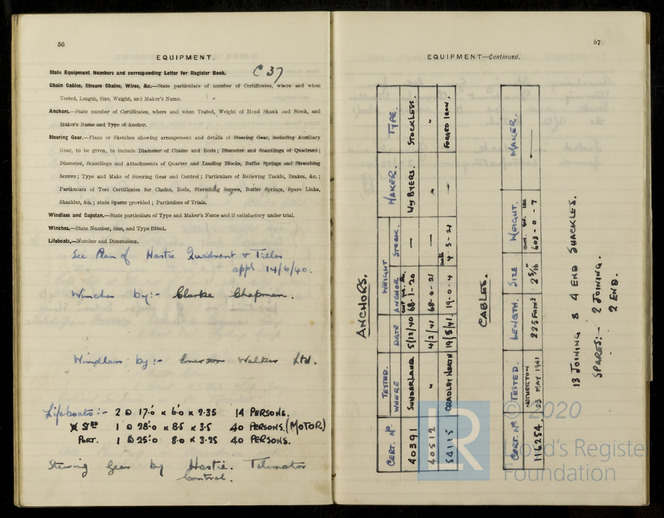 56
EQUIPMENT.
State Equipment Numbers and corresponding Letter for Register Book.
C 37
Chain Cables, Stream Chains, Wires, &c.—State particulars of number of Certificates, where and when
Tested, Length, Size, Weight, and Maker's Name.
Anchors.—State number of Certificates, where and when Tested, Weight of Head Shank and Stock, and
Maker's Name and Type of Anchor.
Steering Gear.—Plans or Sketches showing arrangement and details of Steering Gear, including Auxiliary
Gear, to be given, to include Diameter of Chains and Rods; Diameter and Scantlings of Quadrant;
Diameter, Scantlings and Attachments of Quarter and Leading Blocks, Buffer Springs and Stretching
Screws; Type and Make of Steering Gear and Control; Particulars of Relieving Tackle, Brakes, &c.;
Particulars of Test Certificates for Chains, Rods, Stretching Screws, Buffer Springs, Spare Links,
Shackles, &c.; state Spares provided; Particulars of Trials.
Windlass and Capstan.—State particulars of Type and Maker's Name and if satisfactory under trial.
Winches.—State Number, Size, and Type fitted.
Lifeboats.—Number and Dimensions.
See Plan of Hastie Quadrant & Tiller
appd 14/6/40.
Winches by:- Clarke Chapman.
Windlass by:- Emerson Walker Ltd.
Lifeboats:- 2 @ 17·0 x 6·0 x 2·35 14 PERSONS.
1 @ 28·0 x 8·5 x 3·5 40 PERSONS. (MOTOR)
PORT. 1 @ 25·0 8·0 x 3·25 40 PERSONS.
Steering Gear by Hastie. Telemotor
Control.
57
EQUIPMENT—Continued.
ANCHORS.
CERT. No TESTED WHERE DATE WEIGHT ANCHOR STOCK. MAKER. TYPE.
40391 SUNDERLAND 5/12/40 68·1·20 — Wy BYERS. STOCKLESS.
40512 " 4/2/41 68·0·21 — " "
54115 CRADLEY HEATH 19·0·4 4·3·21 — FORGED IRON.
CABLES.
CERT. No TESTED. LENGTH. SIZE WEIGHT. MAKER.
116254 NETHERTON MAY 1941 2 5/16 603·0·7 —
13 JOINING & 4 END SHACKLES.
SPARES:- 2 JOINING.
2 END.
© 2020
Lloyd's Register
Foundation